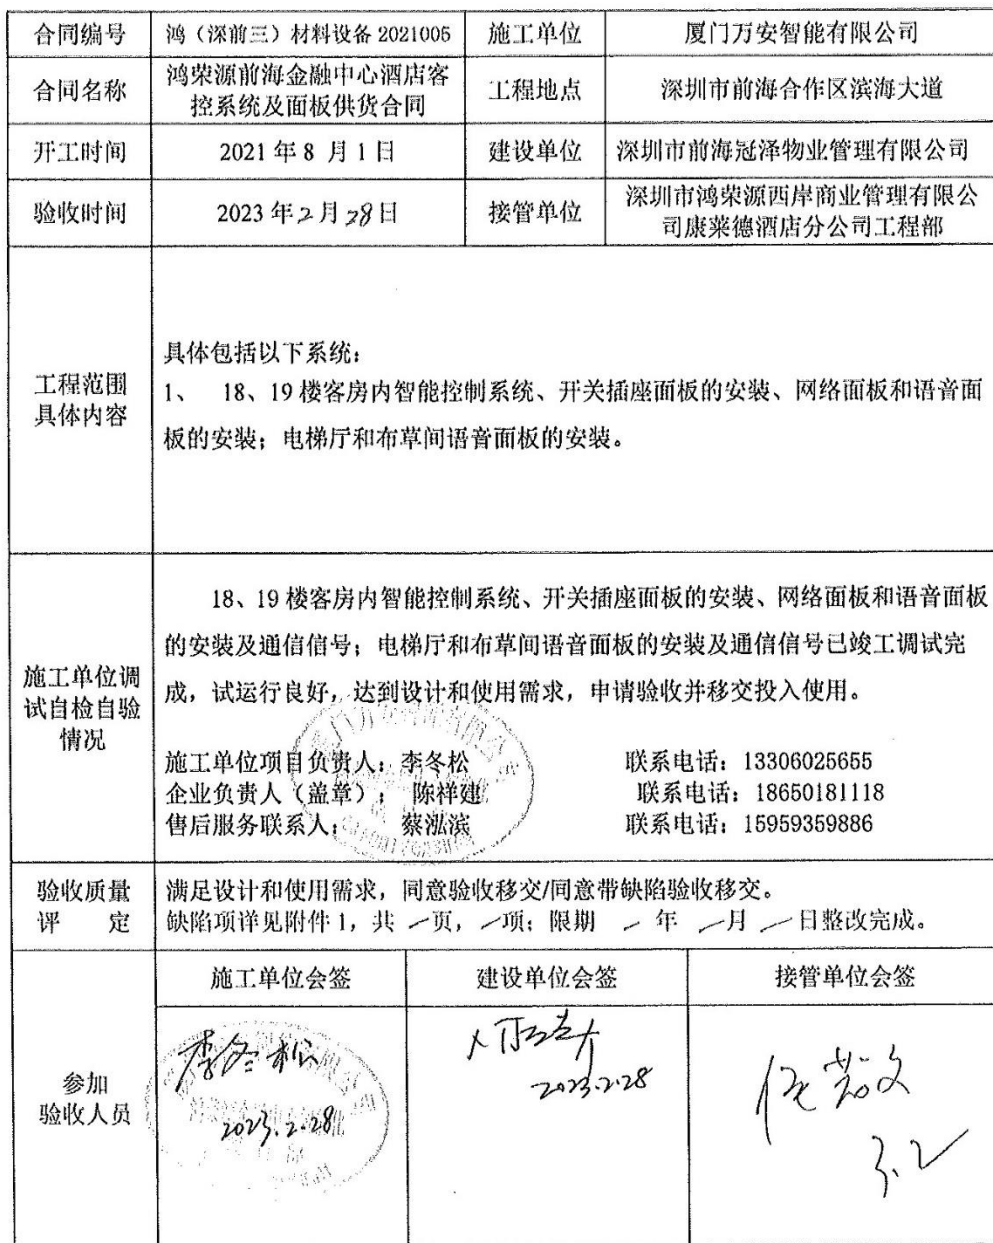 合同编号 鸿（深前三）材料设备 2021005 施工单位 厦门万安智能有限公司
合同名称 鸿荣源前海金融中心酒店客
控系统及面板供货合同 工程地点 深圳市前海合作区滨海大道
开工时间 2021 年 8 月 1 日 建设单位 深圳市前海冠泽物业管理有限公司
验收时间 2023 年 2 月 28 日 接管单位 深圳市鸿荣源西岸商业管理有限公
司康莱德酒店分公司工程部
工程范围
具体内容
具体包括以下系统：
1、 18、19 楼客房内智能控制系统、开关插座面板的安装、网络面板和语音面
板的安装；电梯厅和布草间语音面板的安装。
施工单位调
试自检自验
情况
18、19 楼客房内智能控制系统、开关插座面板的安装、网络面板和语音面板
的安装及通信信号；电梯厅和布草间语音面板的安装及通信信号已竣工调试完
成，试运行良好，达到设计和使用需求，申请验收并移交投入使用。
施工单位项目负责人：李冬松 联系电话：13306025655
企业负责人（盖章）： 陈祥建 联系电话：18650181118
售后服务联系人： 蔡泓滨 联系电话：15959359886
验收质量
评 定
满足设计和使用需求，同意验收移交/同意带缺陷验收移交。
缺陷项详见附件 1，共 ／页，／项；限期 ／ 年 ／月 ／日整改完成。
参加
验收人员
施工单位会签 建设单位会签 接管单位会签
李冬松
2023.2.28
2023.2.28
3.2